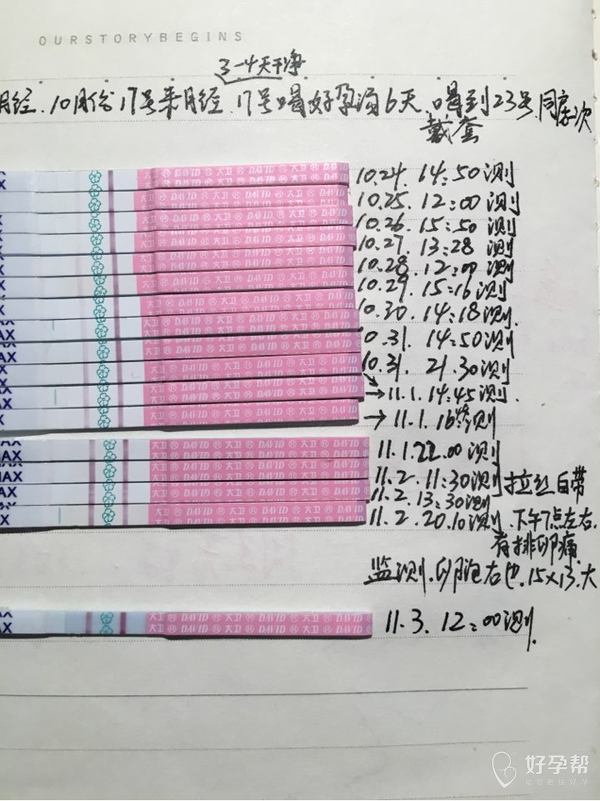 OURSTORYBEGINS
3-4天干净
月经.10月份17号来月经.17号喝好孕汤6天.喝到23号.同房次
戴套
10.24. 14:50测
10.25. 12:00测
10.26. 15:50测
10.27. 13:28测
10.28. 12:00测
10.29. 15:16测
10.30. 14:18测.
10.31. 14:50测
10.31. 21.30测
→11.1.14.45测.
→11.1.16 测
11.1.22.00测
11.2.11:30测 拉丝白带
11.2.13:30测
11.2.20.10测.下午7点左右.
有排卵痛
监测.卵泡右边.15×13.大
11.3.12:00测.
MAX
DAVID 大卫
好孕帮